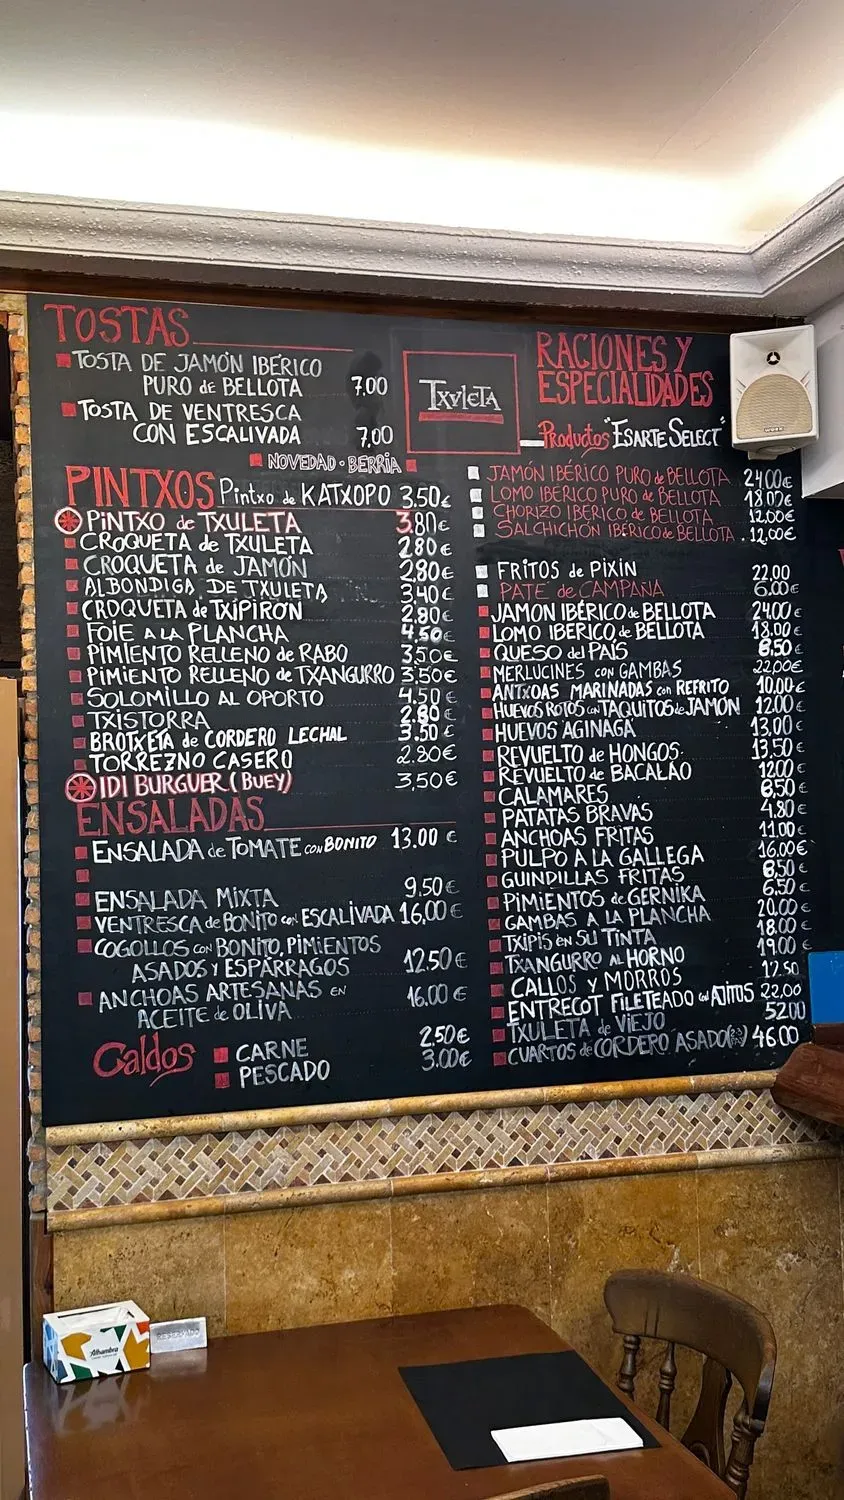 TOSTAS
TOSTA DE JAMÓN IBÉRICO
PURO de BELLOTA 7,00
TOSTA DE VENTRESCA
CON ESCALIVADA 7,00
NOVEDAD · BERRIA
PINTXOS Pintxo de KATXOPO 3,50€
PINTXO de TXULETA 3,80€
CROQUETA de TXULETA 2,80€
CROQUETA de JAMÓN 2,80€
ALBÓNDIGA DE TXULETA 3,40€
CROQUETA de TXIPIRÓN 2,80€
FOIE A LA PLANCHA 4,50€
PIMIENTO RELLENO de RABO 3,50€
PIMIENTO RELLENO de TXANGURRO 3,50€
SOLOMILLO AL OPORTO 4,50€
TXISTORRA 2,80€
BROTXETA de CORDERO LECHAL 3,50€
TORREZNO CASERO 2.80€
IDI BURGUER (BUEY) 3,50€
ENSALADAS
ENSALADA de TOMATE con BONITO 13.00 €
ENSALADA MIXTA 9.50€
VENTRESCA de BONITO con ESCALIVADA 16,00€
COGOLLOS con BONITO, PIMIENTOS
ASADOS Y ESPÁRRAGOS 12.50€
ANCHOAS ARTESANAS EN
ACEITE de OLIVA 16.00€
Caldos
CARNE 2.50€
PESCADO 3.00€
TXULETA
RACIONES Y
ESPECIALIDADES
Productos "ESARTE SELECT"
JAMÓN IBÉRICO PURO de BELLOTA 24,00€
LOMO IBÉRICO PURO de BELLOTA 18,00€
CHORIZO IBÉRICO de BELLOTA 12,00€
SALCHICHÓN IBÉRICO de BELLOTA 12,00€
FRITOS de PIXIN 22,00
PATE de CAMPAÑA 6.00€
JAMON IBÉRICO de BELLOTA 24,00€
LOMO IBERICO de BELLOTA 18.00€
QUESO del PAÍS 8,50€
MERLUCINES CON GAMBAS 22,00€
ANTXOAS MARINADAS con REFRITO 10.00€
HUEVOS ROTOS con TAQUITOS de JAMÓN 12.00€
HUEVOS AGINAGA 13,00€
REVUELTO de HONGOS 13,50€
REVUELTO de BACALAO 12,00€
CALAMARES 8,50€
PATATAS BRAVAS 4,80€
ANCHOAS FRITAS 11.00€
PULPO A LA GALLEGA 16.00€
GUINDILLAS FRITAS 8,50€
PIMIENTOS de GERNIKA 6.50€
GAMBAS A LA PLANCHA 20.00€
TXIPIS EN SU TINTA 18.00€
TXANGURRO AL HORNO 19,00€
CALLOS Y MORROS 12,50
ENTRECOT FILETEADO con AJITOS 22,00
TXULETA de VIEJO 52,00
CUARTOS de CORDERO ASADO 46,00
work
Alhambra
RESERVADO